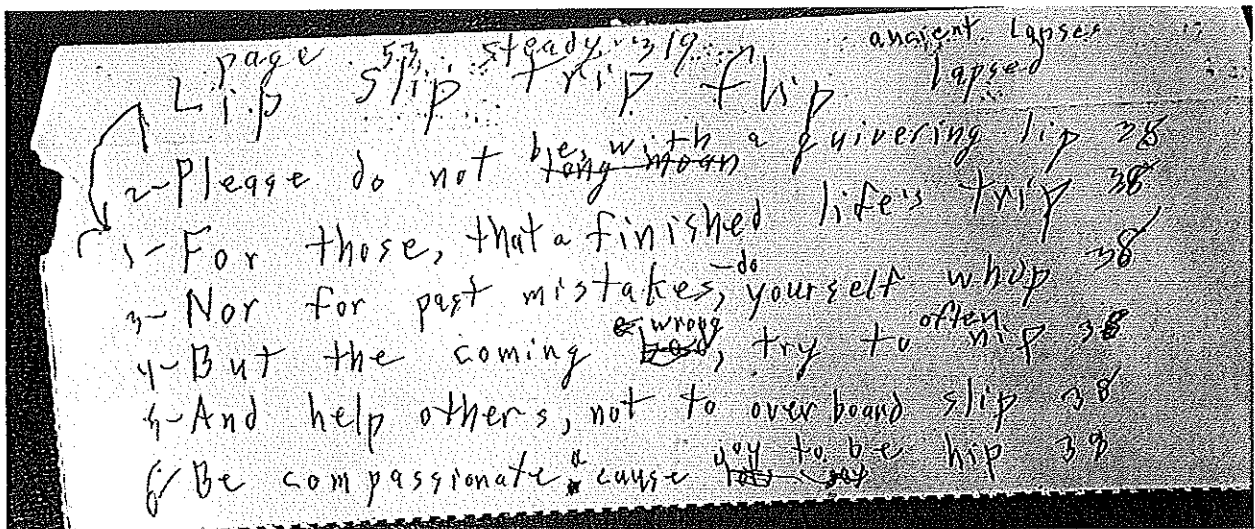 page 53, steady 319 ancient Lapses
Lip slip trip flip lapsed
2- Please do not be, with a quivering lip 38
1- For those, that a finished life's trip 38
3- Nor for past mistakes, -do yourself whup 38
4- But the coming wrong, try to often nip 38
5- And help others, not to overboard slip 38
6 Be compassionate a cause joy to be hip 38